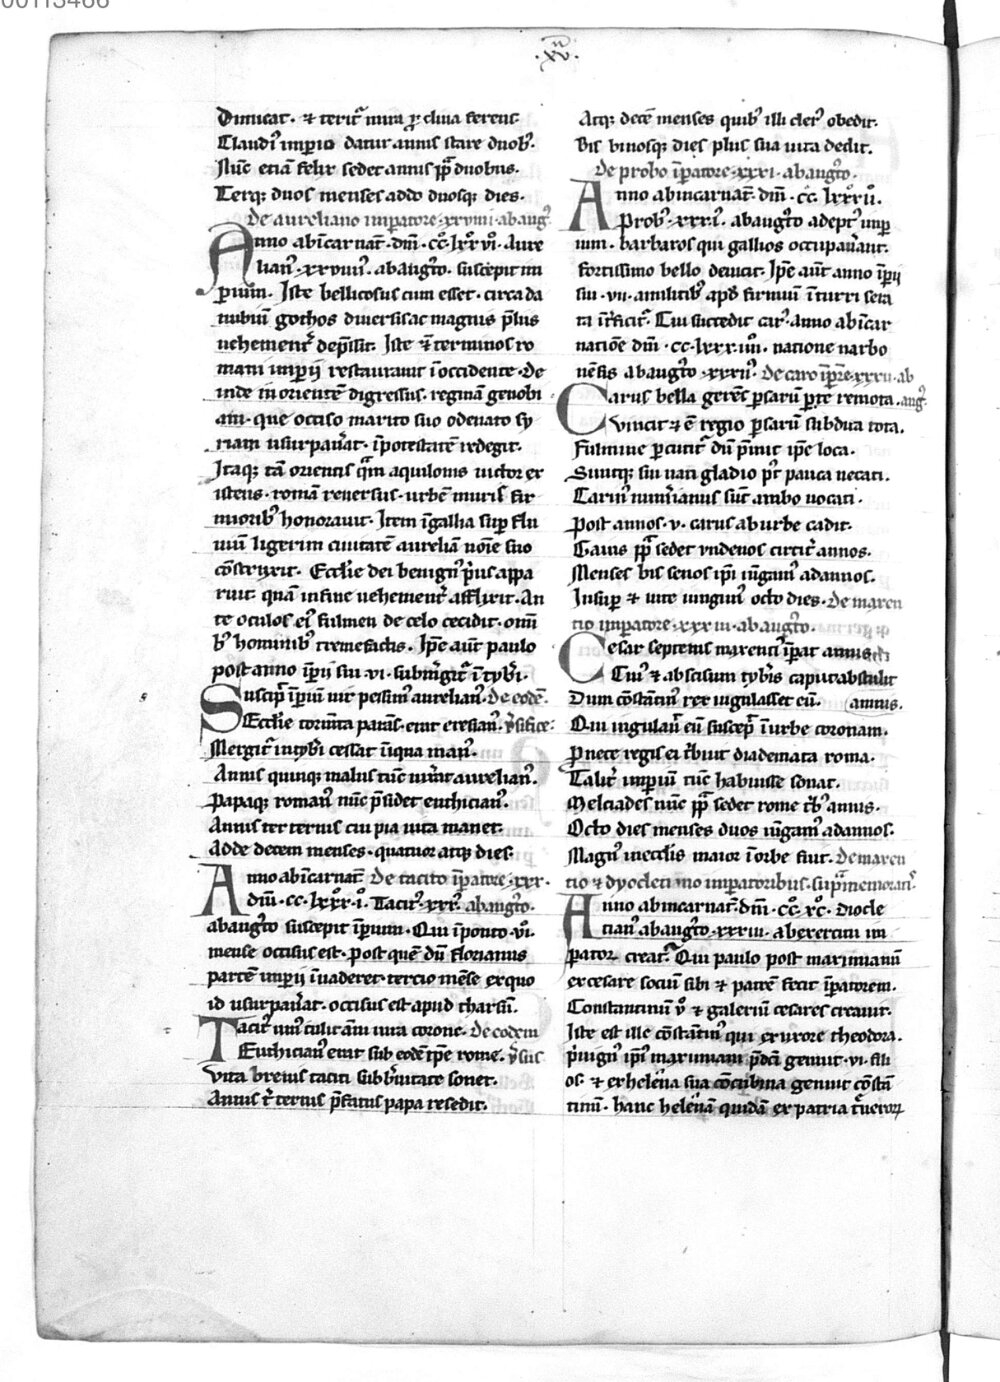 00113466
.xv.
Dimicat. ⁊ terit᷑ mira ꝑ cliua ferent
Claudiꝰ imꝑio datur annis stare duobꝰ.
Nūc etiā felix sedet annis pp̄ duobus.
Terqꝫ duos menses addo duosqꝫ dies.
De aureliano imperatore .xxviiii. ab augꝰ.
Anno ab īcarnat̄. dn̄i .cc. lxxvi. Aure
lianꝰ .xxviiii. ab augꝰto. suscepit im
perium. Iste bellicosus cum esset. circa da
nubiū gothos diuersis ac magnis p̄liis
uehement᷑ dep̄ssit. Iste ⁊ terminos ro
mani imperii restaurauit ī occidente. De
inde in oriente digressus. reginā zenobi
am. que occiso marito suo odenato sy
riam usurpau̾at. ī potestatem redegit.
Itaqꝫ tā orientis q̄m aquilonis uictor ex
istens. romā reuersus. urbē muris fir
mioribꝰ honorauit. Item ī gallia sup flu
uiū ligerim ciuitatē aureliā noīe suo
cōstruxit. Eccl̄ie dei benignꝰ p̾us appa
ruit. quā in fine uehement᷑ afflixit. An
te oculos eiꝰ fulmen de celo cecidit. omī
bꝰ hominibꝰ tremefactis. Ip̄e aūt paulo
post anno īperii sui .vi. submergit᷑ ī tyb̾i.
Suscip̄ īperiū uir pessimꝰ aurelianꝰ. De eodē.
Eccl̄ie tormēta parās. erat eresianꝰ. ỽsifice:
Mergit᷑ in tyb̾i cessat iniqua manꝰ.
Annis quinqꝫ malus tūc uixerat aurelianꝰ.
Papaqꝫ romanꝰ nūc p̄sidet euthicianꝰ.
Annis ter ternis cui pia uita manet.
Adde decem menses. quatuor atqꝫ dies.
Anno ab īcarnat̄. De tacito īperatore .xxx.
dn̄i .cc. lxxx.i. Tacitꝰ .xxxꝰ. ab augꝰto.
ab augꝰto suscepit īperium. Qui ī ponto .vi.
mense occisus est. post quē dū florianus
partem imperii īuaderet. tercio mēse ex quo
id usurpau̾at. occisus est apud tharsū.
Tacitꝰ uita corone. De eodem
Euthicianꝰ erat sub eodē tp̄e rome. ỽsus
Vita breuis taciti sub b̾uitate sonet.
Annis t᷑ ternis p̄fatus papa resedit.
Atqꝫ decē menses quibꝰ illi clerꝰ obedit.
Bis binosqꝫ dies plus sua uita dedit.
De probo īperatore .xxxi. ab augꝰto.
Anno ab incarnat̄. dn̄i .cc. lxxxii.
Probꝰ .xxx.i. ab augꝰto adeptꝰ imp
ium. barbaros qui gallios occupau̾ant.
fortissimo bello deuicit. Ip̄e aūt anno īperii
sui .vii. a militibꝰ apd̄ firmiū ī turri ferra
ta īt̾ficit᷑. Cui succedit carꝰ. Anno ab īcar
natiōe dn̄i .cc. lxxx.iiii. natione narbo
nēsis ab augꝰto .xxxiiꝰ. De caro īperatore .xxxii. ab augꝰ.
Carus bella gerēs persarū parte remota.
Vincit ⁊ ē regio persarū subdita tota.
Fulmine percutit᷑ dū p̄mit ip̄e loca.
Suntqꝫ sui nati gladio p̄t pauca necati.
Carinꝰ num̾ianus sūt ambo uocati.
Post annos .v. carus ab urbe cadit.
Gaius pp̄ sedet undenos circit᷑ annos.
Menses bis senos ip̄i iūgamꝰ ad annos.
Insup ⁊ uite iungimꝰ octo dies. De maxen
tio imperatore .xxxiii. ab augꝰto.
Cesar septenis maxentiꝰ īperat annis
Cuiꝰ ⁊ abscisum tyb̾is caput abstulit amnis.
Dum cōstantinꝰ rex iugulasset eū.
Qui iugulauit eū suscep̄ ī urbe coronam.
Pro nece regis ei t᷑buit diademata roma.
Talit᷑ imperiū tūc habuisse sonat.
Melciades nūc pp̄ sedet rome t᷑bꝰ annis.
Octo dies menses duos iūgamꝰ ad annos.
Magnꝰ in eccl̄iis maior ī orbe fiut. De maxen
tio ⁊ dyocletiano imperatoribus. sup̄memorati᷑.
Anno ab incarnat̄. dn̄i .cc. xc. Diocle
cianꝰ ab augꝰto .xxxiii. ab exercitu im
perator creat᷑. Qui paulo post maximianū
ex cesare sociū sibi ⁊ patrē fecit īperatorem.
Constantinū ỽ ⁊ galeriū cesares creauit.
Iste est ille cōstātinꝰ qui ex uxore theodora.
p̾uignꝰ ip̄iꝰ maximiani p̄dc̄i genuit .vi. fili
os. ⁊ ex helena sua concubina genuit cōstā
tinū. hanc helenā quidā ex patria t᷑ueroꝝ